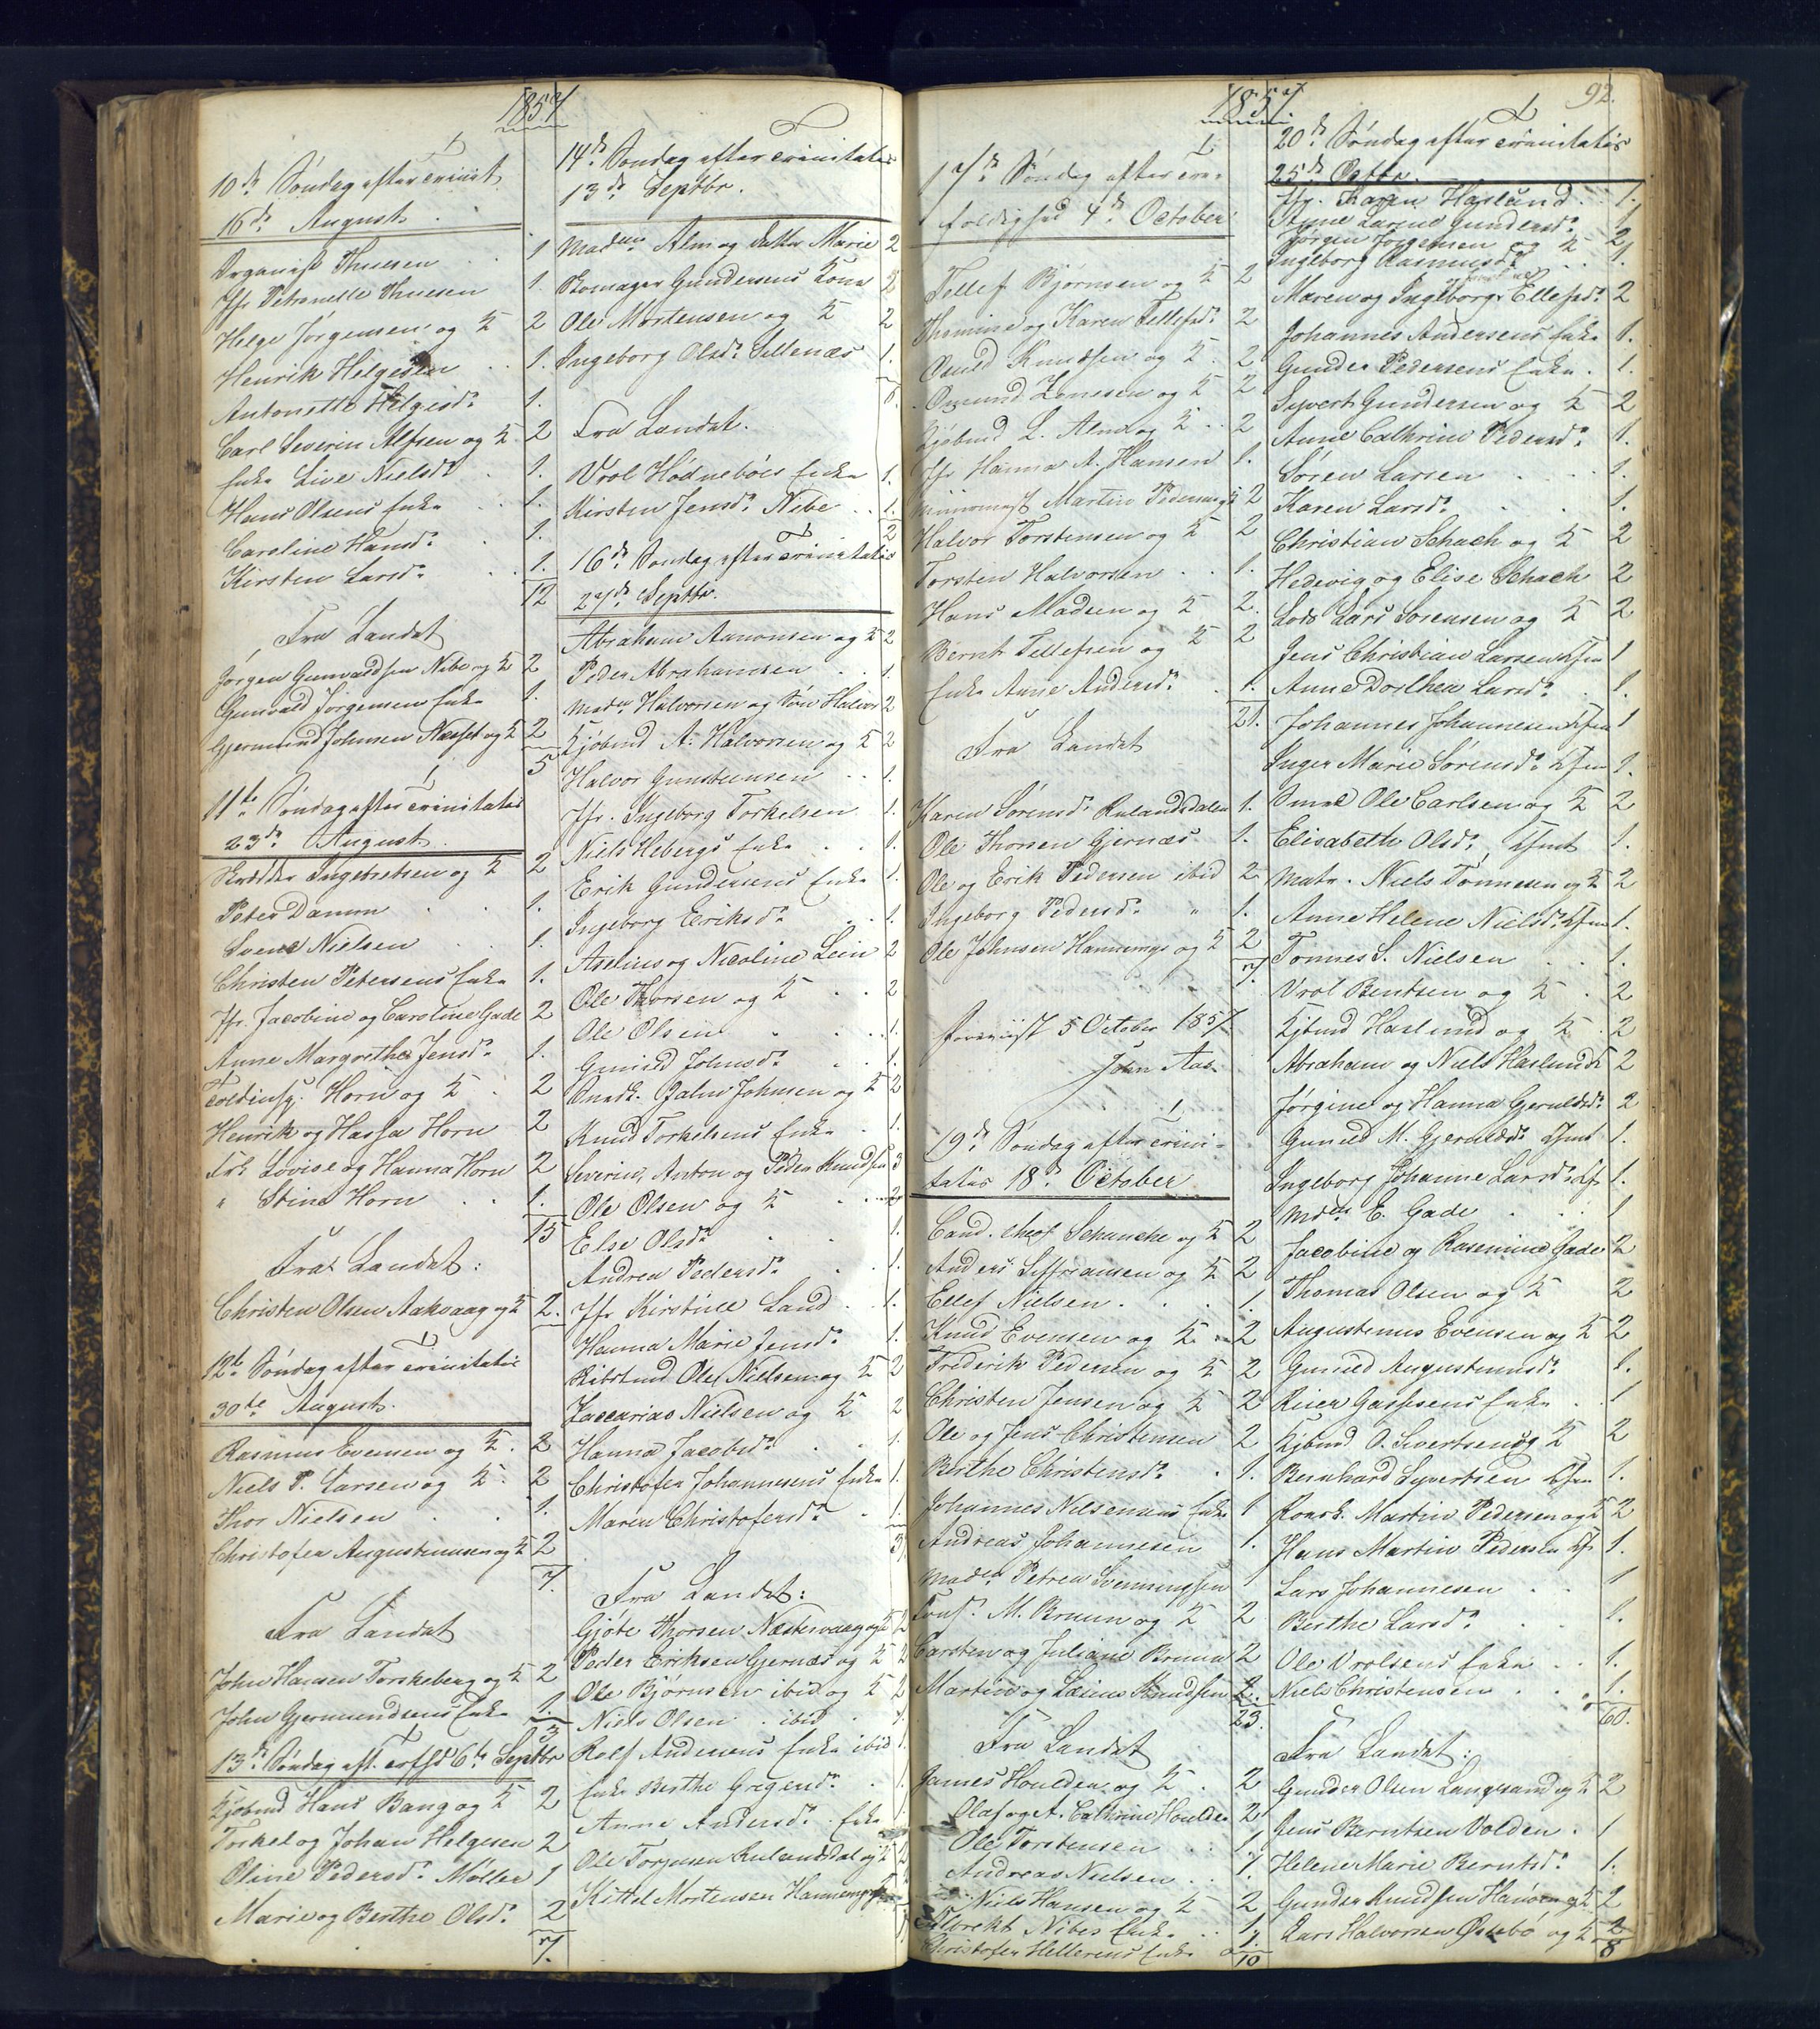 1857
10de Søndag efter Trinit.
16de August
Organist Thuesen 1
Jfr. Petronelle Thuesen 1.
Helge Jørgensen og K 2
Henrik Helgesen 1.
Antonette Helgesd. 1.
Carl Severin Alfsen og K 2
Enke Live Nielsd. 1.
Hans Olsens Enke 1.
Caroline Hansd. 1.
Kirsten Larsd. 1.
12
Fra Landet
Jørgen Gunvaldsen Nibe og K 2
Gunvald Jörgensen Enke 1.
Gjermund Johnsen Næset og K 2
5
11te Søndag efter Trinitatis
23de August
Skrædder Ingebretsen og K 2
Peter Damm 1.
Svend Nielsen 1.
Christen Petersens Enke 1.
Jfr. Jacobine og Caroline Gade 2
Anne Margrethe Jensd. 1.
Toldinsp. Horn og K 2
Henrik og Hassa Horn 2
Frk. Lovise og Hanna Horn 2
" Stina Horn 1.
15
Fra Landet:
Christen Olsen Aakvaag og K 2.
12te Søndag efter Trinitatis
30te August.
Rasmus Evensen og K. 2
Niels P. Larsen og K. 2
Thor Nielsen 1.
Christofer Augustinusen og K 2
7.
Fra Landet
John Hansen Torskeberg og K 2
John Gjermundsens Enke 1.
3
13de Søndag eft. Trfhd 6te Septbr
Kjøbmd Hans Bang og K 2
Torkel og Johan Helgesen 2
Oline Pedersd. Møller 1
Marie og Berthe Olsd. 2
7.
14de Søndag efter Trinitatis
13de Septbr.
Madme Alm og Datter Marie 2
Skomager Gundersens Kone
Ole Mortensen og K 2
Ingeborg Olsd. Sellenæs 1.
Fra Landet.
Vrol Hødnebøes Enke 1.
Kirsten Jensd. Nibe 1.
2
16de Søndag efter Trinitatis
27de Septbr.
Abraham Aanonsen og K 2
Peder Abrahamsen 1.
Madm Halvorsen og Søn Halvor 2
Kjøbmd A. Halvorsen og K 2
Halvor Gunsteensen 1.
Jfr. Ingeborg Torkelsen 1.
Niels Hebergs Enke 1.
Erik Gundersens Enke 1.
Ingeborg Eriksd. 1.
Aselius og Nicoline Lein 2
Ole Thorsen og K 2
Ole Olsen 1.
Gunild Johnsd. 1.
Jahn Johnsen og K 2
Knud Torkelsens Enke 1.
Severin, Anton og Peder Knudsen 3
Ole Olsen og K 2
Else Olsd. 1.
Andrea Pedersd. 1.
Jfr Kirstine Lund 1.
Hanna Marie Jensd. 1.
Ole Nielsen og K 2
Zaccarias Nielsen og K 2
Hanna Jacobsd. 1.
Christofer Johannesens Enke 1.
Maren Christofersd. 1.
Fra Landet:
Gjøte Thorsen Næstervaag og K 2
Peder Eriksen Gjernæs og K 2
Ole Bjørnsen ibid og K 2
Niels Olsen ibid 1.
Rolf Andersens Enke ibid 1.
Enke Berthe Gregersd. 1
Anne Andersd. Enke
Ole Torjusen Rulandsdal og K 2
Kittel Mortensen Hammemyr
1857.
17de Søndag efter Tre-
foldighed 4de October
Tellef Bjørnsen og K 2
Thomine og Karen Tellefsd. 2
Osuld Knudsen og K. 2.
Omund Zonesen og K 2
Kjøbmd L. Alm og K 2
Jfr Hanna A. Hansen 1.
Martin Pedersen og K 2
Halvor Torstensen og K 2
Torsten Halvorsen 1.
Hans Madsen og K 2.
Bernt Tellefsen og K 2
Enke Anne Andersd. 1.
21.
Fra Landet
Karen Sørensd. Rulandsdalen 1.
Ole Thorsen Gjernæs 1.
Ole og Erik Pedersen ibid 2
Ingeborg Pedersd. " 1.
Ole Johnsen Hammemyr og K 2
7.
foreviist 5 October 1857
John Aas
19de Søndag efter Trini-
tatis 18de October
Cand. theol Schanche og K 2
Anders Siffriansen og K 2
Ellef Nielsen 1.
Knud Evensen og K 2
Frederik Pedersen og K 2
Christen Jensen og K 2
Ole og Jens Christensen 2
Berthe Christensd. 1.
Johannes Nilsensens Enke 1
Andreas Johannesen 1.
Madm Petrea Svenningsen 1
M. Bruun og K 2
Carsten og Juliane Bruun 2
Martin og Lauus Knudsen 2.
23.
Fra Landet
James Houlder og K 2
Olaf og A. Cathrine Houlder 2
Ole Torstensen 1
Andreas Nielsen 1
Niels Hansen og K 2
Nibes Enke 1.
Christofer Hellerens Enke 1.
10
92.
20de Søndag efter Trinitatis
25de Octbr.
Jfr. Karen Haslund 1.
Anne Larine Gundersd. 1
Jørgen Jørgensen og K 2
Ingeborg Rasmusd. 1.
Maren og Ingeborg Ellefsd. 2
Johannes Andersens Enke 1.
Gunder Pedersens Enke 1.
Syvert Gundersen og K 2
Anne Cathrine Pedersd. 1.
Søren Larsen 1.
Karen Larsd. 1.
Christian Schach og K 2
Hedevig og Elise Schach 2
Lods Lars Sørensen og K 2
Jens Christian Larsen Kfm 1
Anne Dorthea Larsd. 1.
Johannes Johannesen Kfm 1
Inger Marie Sørensd. Kfm 1.
Smed Ole Carlsen og K 2
Elisabeth Olsd. Kfmt 1.
Matr. Niels Tønnesen og K 2
Anne Helene Nielsd. Kfm 1.
Tønnes S. Nielsen 1.
Vrol Bentsen og K 2
Kjbmd Haslund og K 2
Abraham og Niels Haslund 2
Jørgine og Hanna Gjeruldsd. 2
Gunild M. Gjeruldsd. Kfmt 1.
Ingeborg Johanne Larsd. Kf 1.
Mdm E. Gade 1
Jacobine og Rasmine Gade 2
Thomas Olsen og K 2
Augustinus Evensen og K 2
Gunild Augustinusd. 1.
Riier Gasssens Enke 1
Kjbmd O. Sivertsen og K 2
Bernhard Syvertsen Kfm 1.
Martin Pedersen og K 2
Hans Martin Pedersen Kf 1.
Lars Johannesen 1
Berthe Larsd. 1.
Ole Vrolsens Enke 1.
Niels Christensen 1.
60.
Fra Landet:
Gunder Olsen Langsand og K 2
Jens Berntsen Volden 1
Helene Marie Berntsd. 1.
Gunder Knudsen Hanøen og K 2
Lars Halvorsen Østebø og K 2
8